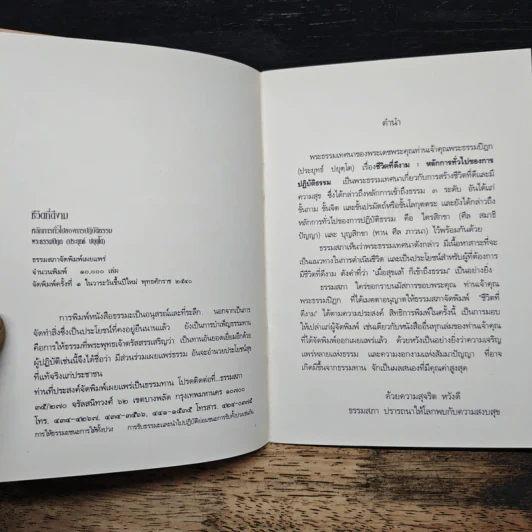 ชีวิตที่ดีงาม
หลักการทั่วไปของการปฏิบัติธรรม
พระธรรมปิฎก (ประยุทธ์ ปยุตฺโต)
ธรรมสภาจัดพิมพ์เผยแพร่
จำนวนพิมพ์ ๑๐,๐๐๐ เล่ม
จัดพิมพ์ครั้งที่ ๑ ในวาระวันขึ้นปีใหม่ พุทธศักราช ๒๕๔๐
การพิมพ์หนังสือธรรมะเป็นอนุสรณ์และที่ระลึก นอกจากเป็นการ
จัดทำสิ่งซึ่งเป็นประโยชน์ที่คงอยู่ยืนนานแล้ว ยังเป็นการบำเพ็ญธรรมทาน
คือการให้ธรรมที่พระพุทธเจ้าตรัสสรรเสริญว่า เป็นทานอันยอดเยี่ยมอีกด้วย
ผู้ปฏิบัติเช่นนี้จึงได้ชื่อว่า มีส่วนร่วมเผยแพร่ธรรม อันจะอำนวยประโยชน์สุข
ที่แท้จริงแก่ประชาชน
ท่านที่ประสงค์จัดพิมพ์เผยแพร่เป็นธรรมทาน โปรดติดต่อที่...ธรรมสภา
๓๕/๒๗๐ จรัลสนิทวงศ์ ๖๒ เขตบางพลัด กรุงเทพมหานคร ๑๐๗๐๐
โทร. ๔๓๔-๔๒๖๗, ๔๓๔-๓๕๖๖, ๔๔๑-๑๕๓๕ โทรสาร. ๔๒๔-๐๓๗๕
การให้ธรรมะชนะการให้ทั้งปวง การรับธรรมะและนำไปปฏิบัติย่อมชนะการรับทั้งปวงเช่นกัน
คำนำ
พระธรรมเทศนาของพระเดชพระคุณท่านเจ้าคุณพระธรรมปิฎก
(ประยุทธ์ ปยุตฺโต) เรื่องชีวิตที่ดีงาม : หลักการทั่วไปของการ
ปฏิบัติธรรม เป็นพระธรรมเทศนาเกี่ยวกับการสร้างชีวิตที่ดีและมี
ความสุข ซึ่งได้กล่าวถึงหลักการเข้าถึงธรรม ๓ ระดับ อันได้แก่
ขั้นกาม ขั้นจิต และขั้นปรมัตถ์หรือขั้นโลกุตตระ และยังได้กล่าวถึง
หลักทั่วไปของการปฏิบัติธรรม คือ ไตรสิกขา (ศีล สมาธิ
ปัญญา) และ บุญสิกขา (ทาน ศีล ภาวนา) ไว้พร้อมกันด้วย
ธรรมสภาเห็นว่าพระธรรมเทศนาดังกล่าว มีเนื้อหาสาระที่จะ
เป็นแนวทางในการดำเนินชีวิต และเป็นประโยชน์สำหรับผู้ที่ต้องการ
มีชีวิตที่ดีงาม ดังคำที่ว่า "เมื่อสุขแท้ ก็เข้าถึงธรรม" เป็นอย่างยิ่ง
ธรรมสภา ใคร่ขอกราบนมัสการขอบพระคุณ ท่านเจ้าคุณ
พระธรรมปิฎก ที่ได้เมตตาอนุญาตให้ธรรมสภาจัดพิมพ์ "ชีวิตที่
ดีงาม" ได้ตามความประสงค์ สิทธิการพิมพ์ในครั้งนี้ เป็นการมอบ
ให้เปล่าแก่ผู้จัดพิมพ์ เช่นเดียวกับหนังสืออื่นทุกเล่มของท่านเจ้าคุณ
ที่ได้จัดพิมพ์ออกเผยแพร่แล้ว ด้วยหวังเป็นอย่างยิ่งว่าความเจริญ
แพร่หลายแห่งธรรม และความงอกงามแห่งสัมมาปัญญา ที่อาจ
เกิดมีขึ้นจากธรรมทาน จักเป็นผลสนองที่มีคุณค่าสูงสุด
ด้วยความสุจริต หวังดี
ธรรมสภา ปรารถนาให้โลกพบกับความสงบสุข